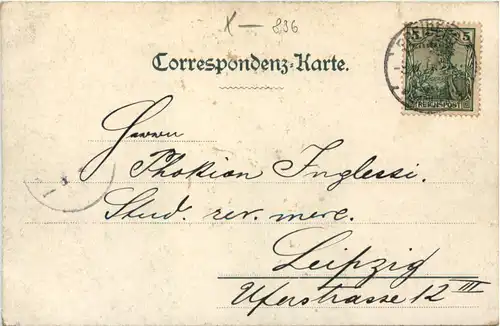 X — 896
Correspondenz-Karte.
5 5
REICHSPOST
Herrn
Phokion Inglessi.
Stud. rer. merc.
Leipzig
Uferstrasse 12 III